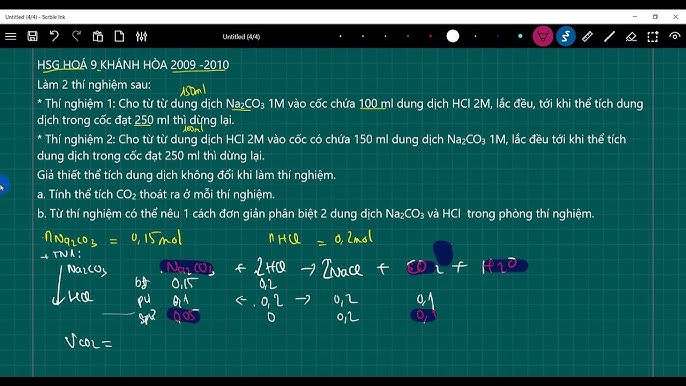 Untitled (4/4) - Scrble Ink
Untitled (4/4)
HSG HOÁ 9 KHÁNH HÒA 2009 -2010
Làm 2 thí nghiệm sau:
150ml
* Thí nghiệm 1: Cho từ từ dung dịch Na₂CO₃ 1M vào cốc chứa 100 ml dung dịch HCl 2M, lắc đều, tới khi thể tích dung
dịch trong cốc đạt 250 ml thì dừng lại.
100ml
* Thí nghiệm 2: Cho từ từ dung dịch HCl 2M vào cốc có chứa 150 ml dung dịch Na₂CO₃ 1M, lắc đều tới khi thể tích
dung dịch trong cốc đạt 250 ml thì dừng lại.
Giả thiết thể tích dung dịch không đổi khi làm thí nghiệm.
a. Tính thể tích CO₂ thoát ra ở mỗi thí nghiệm.
b. Từ thí nghiệm có thể nêu 1 cách đơn giản phân biệt 2 dung dịch Na₂CO₃ và HCl trong phòng thí nghiệm.
nNa₂CO₃ = 0,15mol nHCl = 0,2mol
+ TN1:
Na₂CO₃ Na₂CO₃ + 2HCl → 2NaCl + CO₂ + H₂O
bđ 0,15 0,2
HCl pu 0,1 ← 0,2 → 0,2 0,1
0,05 0 0,2 0,1
VCO₂ =